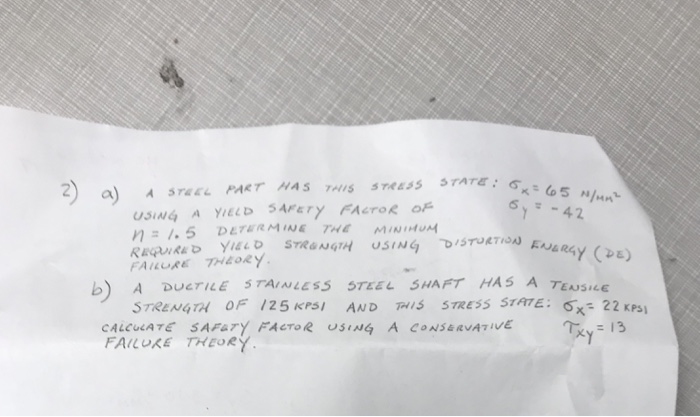 2) a) A STEEL PART HAS THIS STRESS STATE: σx = 65 N/MM²
USING A YIELD SAFETY FACTOR OF σy = -42
n = 1.5 DETERMINE THE MINIMUM
REQUIRED YIELD STRENGTH USING DISTORTION ENERGY (DE)
FAILURE THEORY.
b) A DUCTILE STAINLESS STEEL SHAFT HAS A TENSILE
STRENGTH OF 125 KPSI AND THIS STRESS STATE: σx = 22 KPSI
CALCULATE SAFETY FACTOR USING A CONSERVATIVE τxy = 13
FAILURE THEORY.